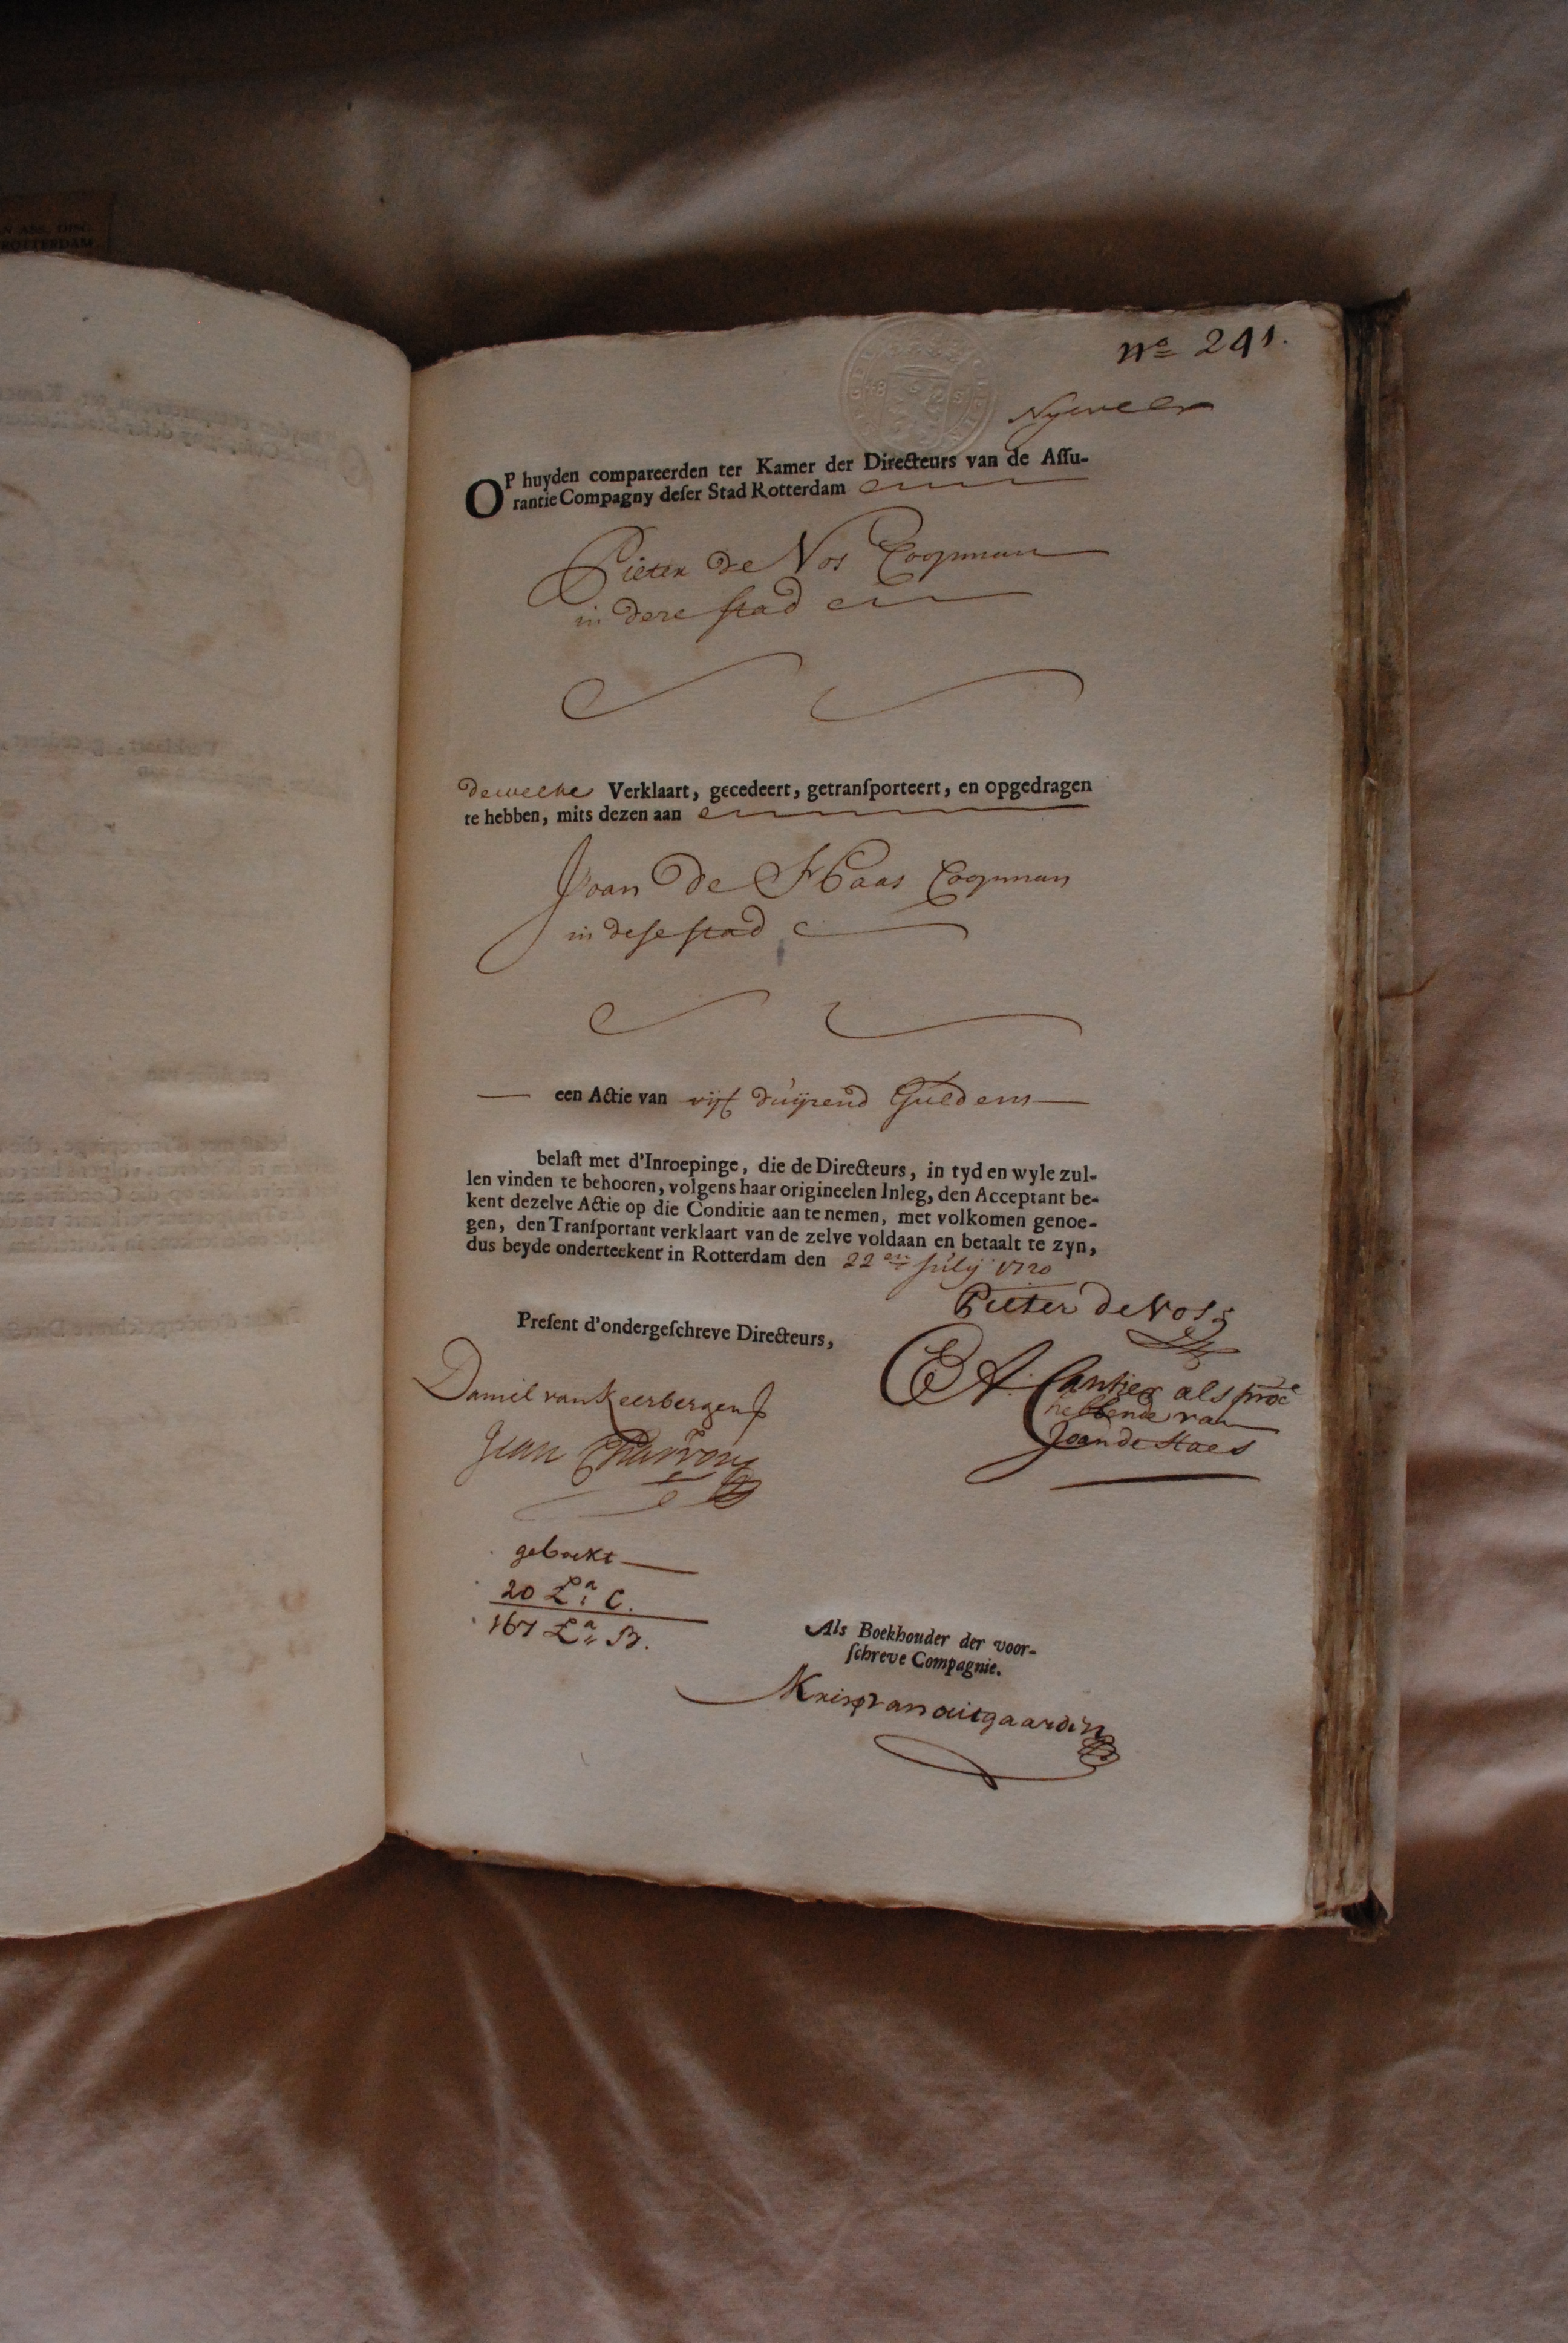 nº 241.
OP huyden compareerden ter Kamer der Directeurs van de Aſſu-
rantie Compagny deſer Stad Rotterdam
Pieter de Vos Coopman
in deze ſtad
dewelke Verklaart, gecedeert, getranſporteert, en opgedragen
te hebben, mits dezen aan
Joan de Haas Coopman
in deſe ſtad
een Actie van vijf duijzend Guldens
belaſt met d'Inroepinge, die de Directeurs, in tyd en wyle zul-
len vinden te behooren, volgens haar origineelen Inleg, den Acceptant be-
kent dezelve Actie op die Conditie aan te nemen, met volkomen genoe-
gen, den Tranſportant verklaart van de zelve voldaan en betaalt te zyn,
dus beyde onderteekent in Rotterdam den 22en July 1720
Pieter de Vos
Preſent d'ondergeſchreve Directeurs,
Daniel van Keerbergen
Jean Charron
als proc
hebbende van
Joan de Haes
geboekt
20 La C.
167 La B.
Als Boekhouder der voor-
ſchreve Compagnie.